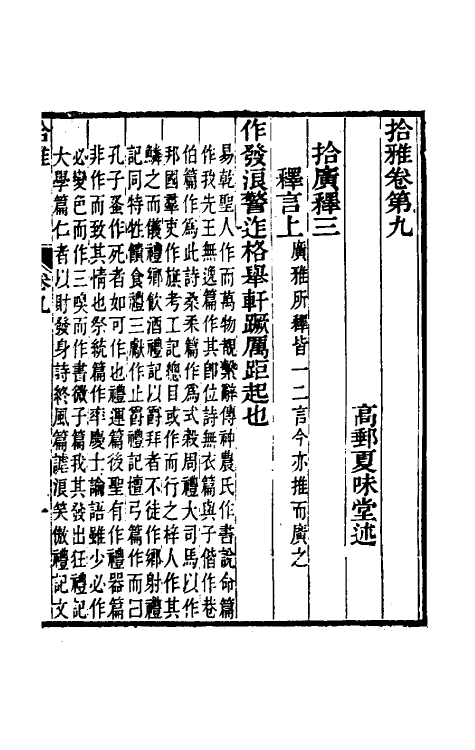 拾雅卷第九
高郵夏味堂述
拾廣釋三
釋言上廣雅所釋皆一二言今亦推而廣之
作發浪警迮格舉軒蹶厲距起也
易乾聖人作而萬物覩繫辭傳神農氏作書說命篇
作我先王無逸篇作其卽位詩無衣篇與子偕作巷
伯篇作爲此詩桑柔篇作爲式穀周禮大司馬以作
邦國羣吏作旗考工記總目或作而行之梓人作其
鱗之而儀禮鄉飮酒禮記以爵拜者不徒作鄉射禮
記同特牲饋食禮三獻作止爵禮記檀弓篇作而曰
孔子蚤作死者如可作也禮運篇後聖有作禮器篇
非作而致其情也祭統篇作率慶士論語雖少必作
必變色而作三嗅而作書微子篇我其發出狂禮記
大學篇仁者以財發身詩終風篇謔浪笑傲禮記文
拾雅
卷九
一